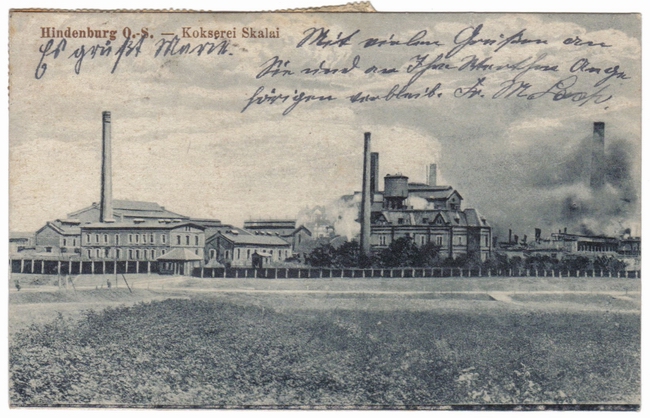 Hindenburg O.-S. — Kokserei Skalai
Es grüßt Mark.
Mit vielen Grüßen an
Sie und an Ihre Werthen Ange-
hörigen verbleib. Fr. M.